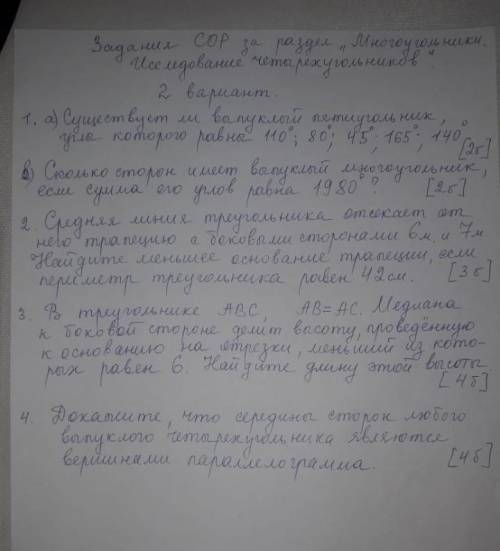 Задания СОР за раздел „Многоугольники.
Исследование четырехугольников".
2 вариант.
1. а) Существует ли выпуклый пятиугольник,
углы которого равны 110°; 80°; 45°; 165°; 140°
[2б]
в) Сколько сторон имеет выпуклый многоугольник,
если сумма его углов равна 1980°? [2б]
2. Средняя линия треугольника отсекает от
него трапецию а боковыми сторонами 6м. и 7м
Найдите меньшее основание трапеции, если
периметр треугольника равен 42см. [3б]
3. В треугольнике АВС, АВ=АС. Медиана
к боковой стороне делит высоту, проведённую
к основанию на отрезки, меньший из кото-
рых равен 6. Найдите длину этой высоты
[4б]
4. Докажите, что середины сторон любого
выпуклого четырехугольника являются
вершинами параллелограмма. [4б]